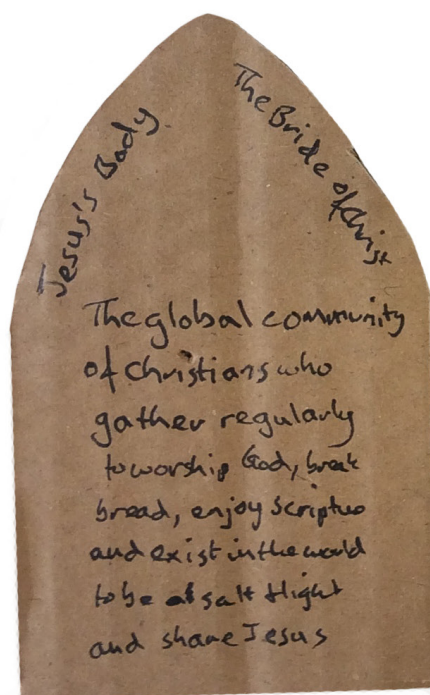 Jesus's Body
The Bride of Christ
The global community
of Christians who
gather regularly
to worship God, break
bread, enjoy scripture
and exist in the world
to be salt + light
and share Jesus